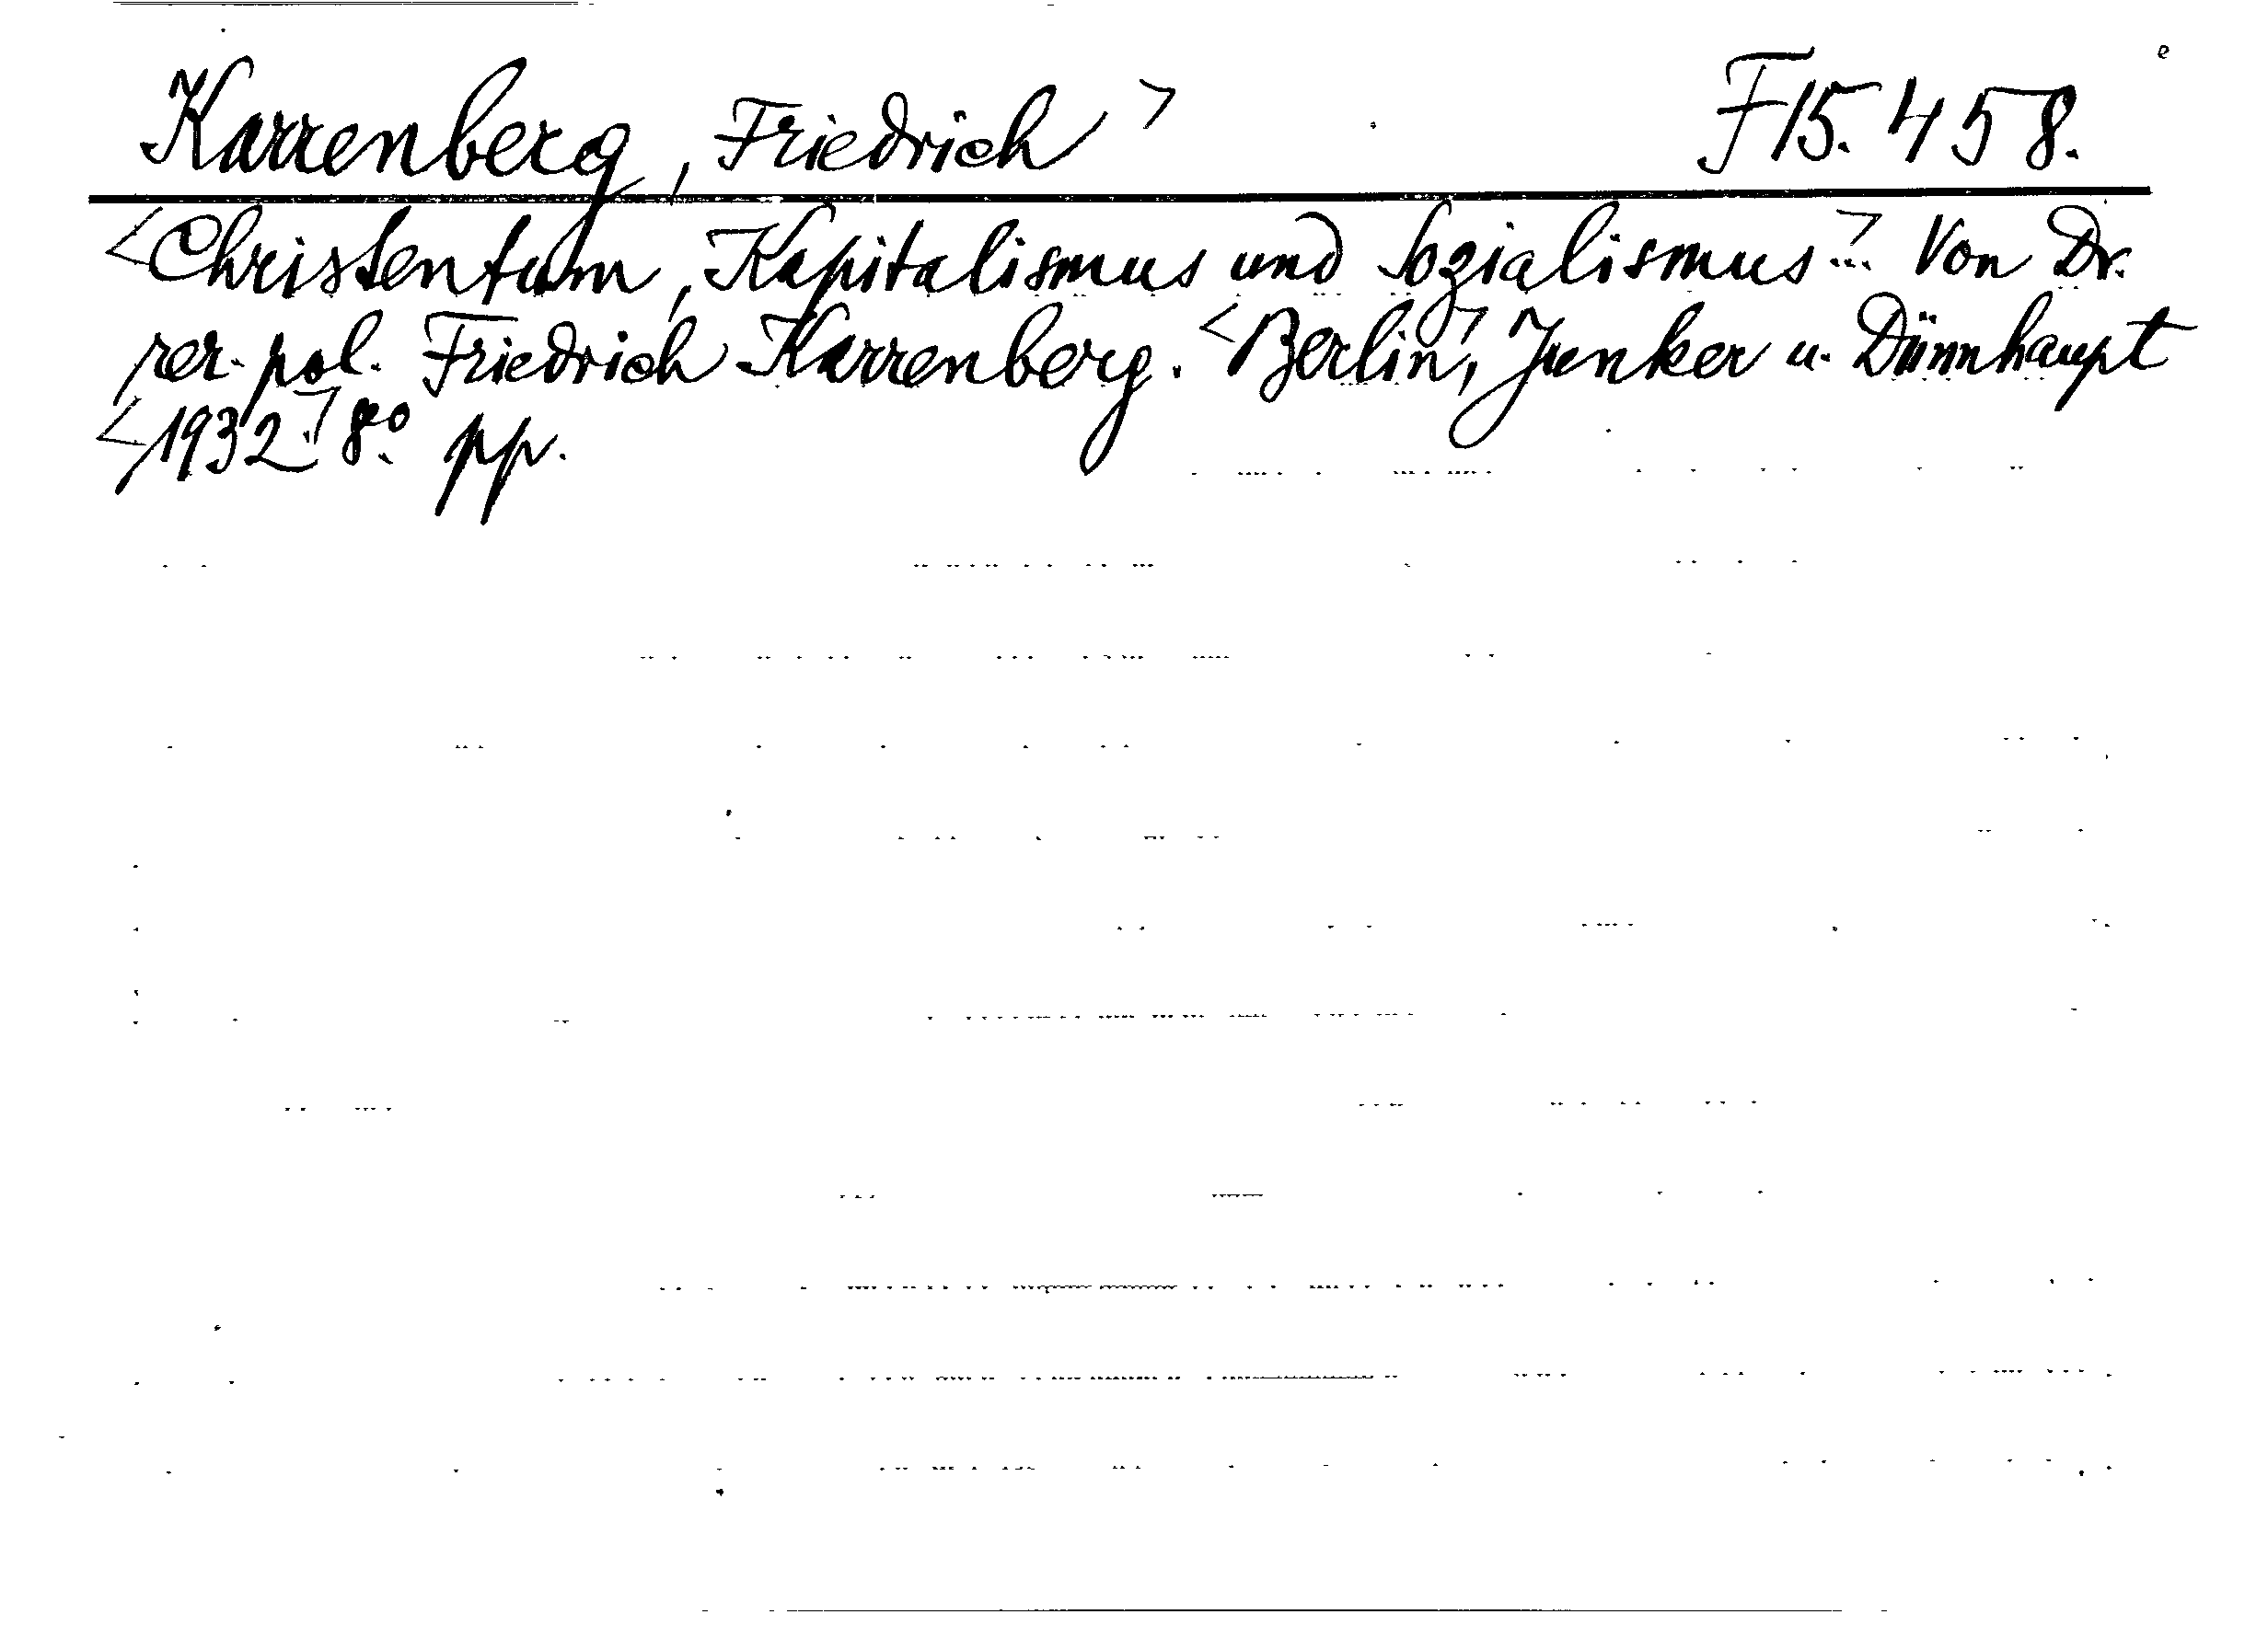 Karrenberg, Friedrich> F 15.458.
<Christentum, Kapitalismus und Sozialismus>... Von Dr.
rer. pol. Friedrich Karrenberg. <Berlin>, Junker u. Dünnhaupt
<1932.> 8o. pp.